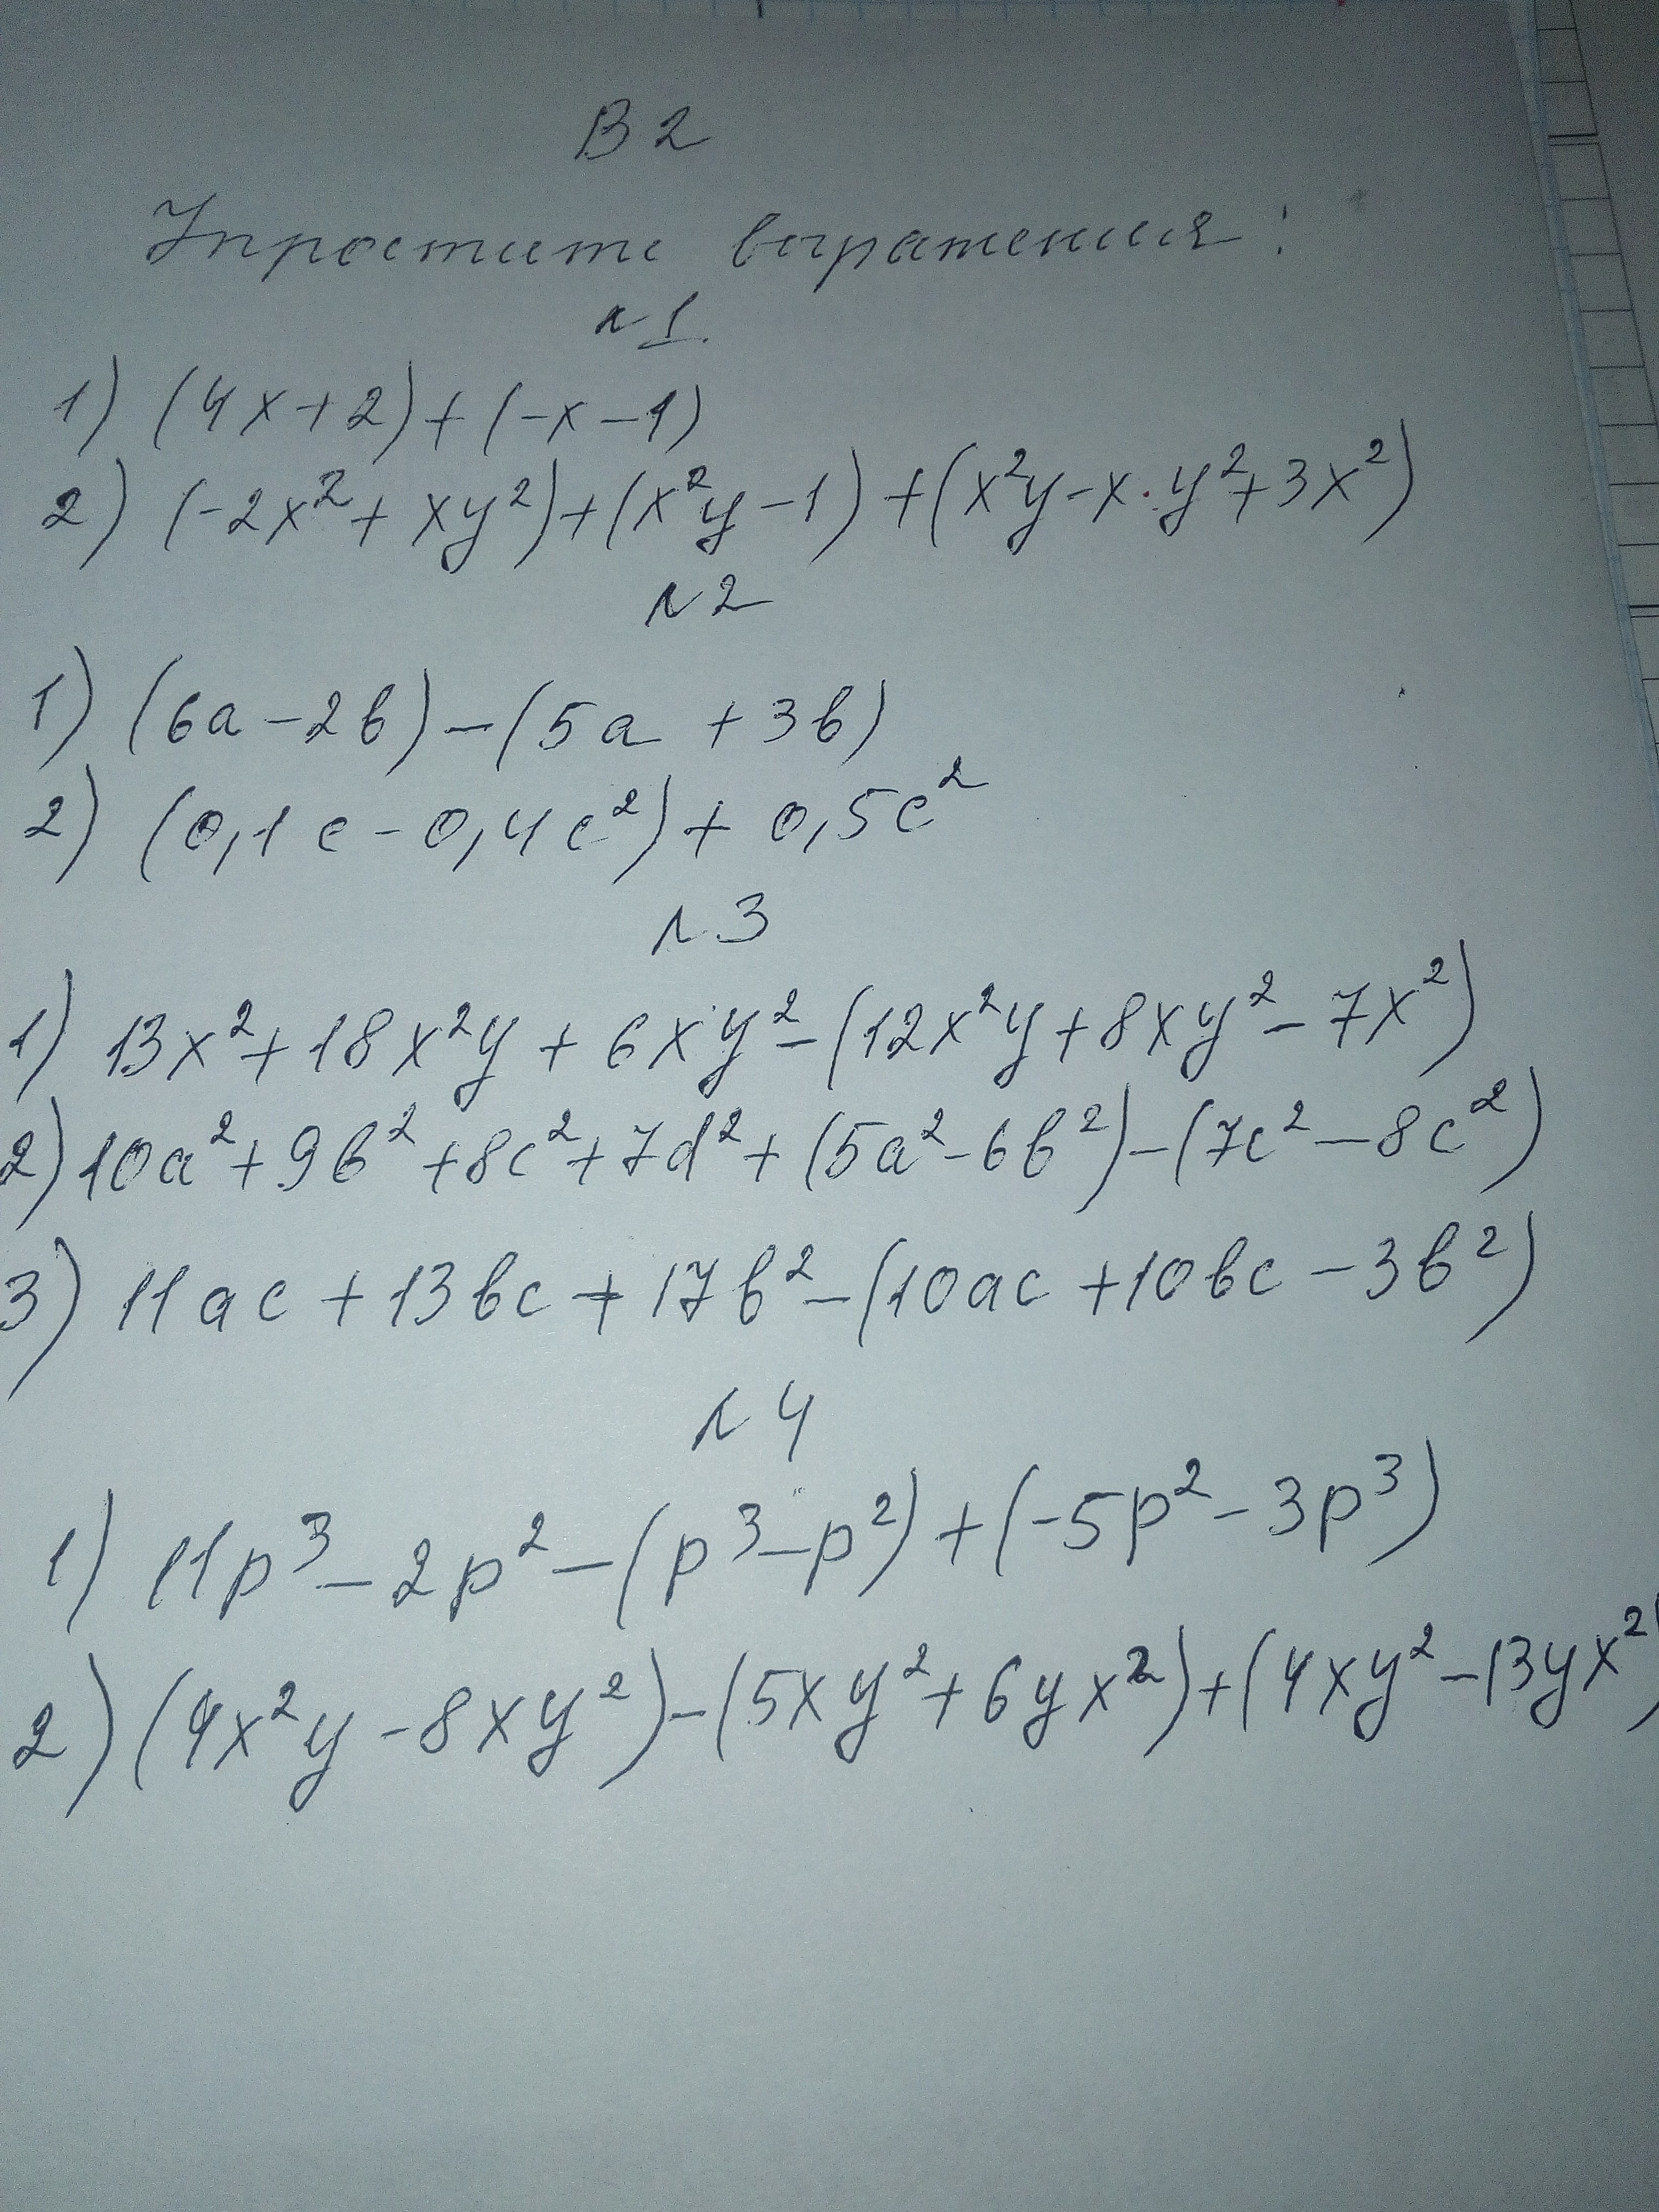 В 2
Упростите выражения:
№1.
1) (4x+2)+(-x-1)
2) (-2x²+xy²)+(x²y-1)+(x²y-x·y²+3x²)
№2
1) (6a-2b)-(5a+3b)
2) (0,1c-0,4c²)+0,5c²
№3
1) 13x²+18x²y+6xy²-(12x²y+8xy²-7x²)
2) 10a²+9b²+8c²+7d²+(5a²-6b²)-(7c²-8c²)
3) 11ac+13bc+17b²-(10ac+10bc-3b²)
№4
1) 11p³-2p²-(p³-p²)+(-5p²-3p³)
2) (4x²y-8xy²)-(5xy²+6yx²)+(4xy²-13yx²)